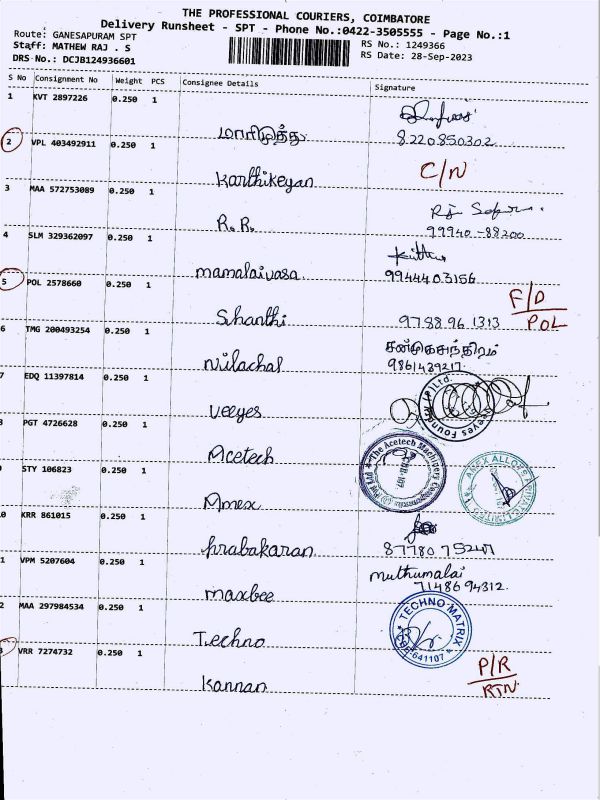 THE PROFESSIONAL COURIERS, COIMBATORE
Delivery Runsheet - SPT - Phone No.:0422-3505555 - Page No.:1
Route: GANESAPURAM SPT
RS No.: 1249366
Staff: MATHEW RAJ . S
RS Date: 28-Sep-2023
DRS No.: DCJB124936601
S No Consignment No Weight PCS Consignee Details Signature
1 KVT 2897226 0.250 1
மாரிமுத்து 8220850302
2 VPL 403492911 0.250 1
Karthikeyan C/N
3 MAA 572753089 0.250 1
R.R. 99940-88200
4 SLM 329362097 0.250 1
mamalaivasa 9944403156
5 POL 2578660 0.250 1
F/D
POL
Shanthi 9788961313
6 TMG 200493254 0.250 1
Nilachal 9861439217
7 EDQ 11397814 0.250 1
Veeyes
PGT 4726628 0.250 1
Acetech
The Acetech Machinery Components
STY 106823 0.250 1
Amex
0 KRR 861015 0.250 1
prabakaran
1 VPM 5207604 0.250 1
muthumalai
maxbee 7148694312
2 MAA 297984534 0.250 1
TECHNO MATRIX
641107
Techno
VRR 7274732 0.250 1
P/R
RTN
Kannan